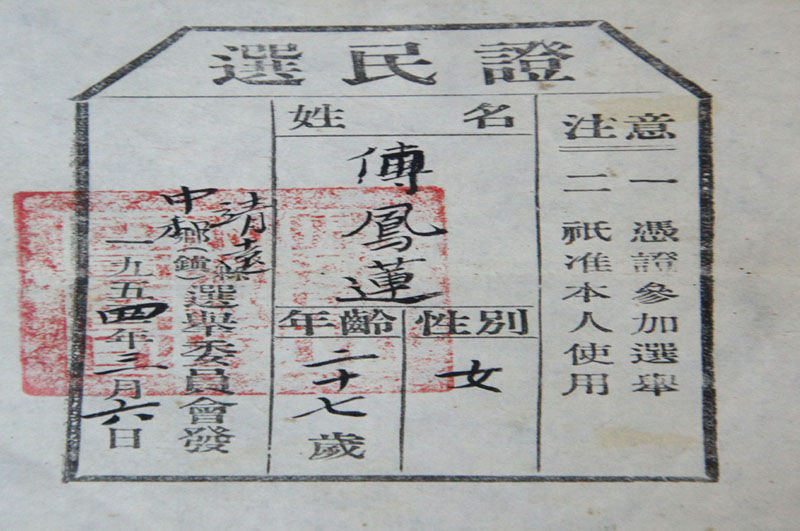 選民證
注意
一 憑證參加選舉
二 祇准本人使用
姓名
傅鳳蓮
性別
女
年齡
二十七歲
靖遠縣
中鄉鎮選舉委員會發
一九五四年三月六日